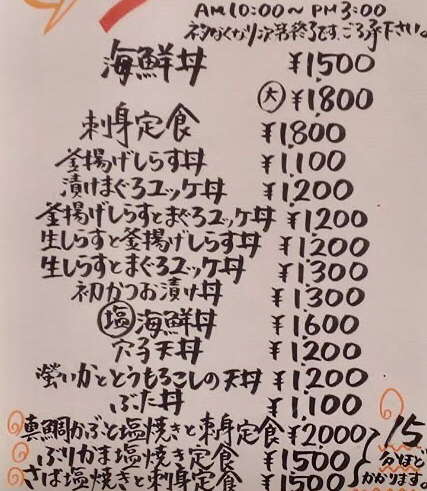 AM10:00〜PM3:00
ネタなくなり次第終了です。ご了承下さい。
海鮮丼 ¥1500
大 ¥1800
刺身定食 ¥1,800
釜揚げしらす丼 ¥1,100
漬けまぐろユッケ丼 ¥1,200
釜揚げしらすとまぐろユッケ丼 ¥1,200
生しらすと釜揚げしらす丼 ¥1,200
生しらすとまぐろユッケ丼 ¥1,300
初かつお漬け丼 ¥1,300
塩海鮮丼 ¥1,600
穴子天丼 ¥1,200
蛍いかととうもろこしの天丼 ¥1,200
ぶた丼 ¥1,100
真鯛かぶと塩焼きと刺身定食 ¥2000
ぶりかま塩焼き定食 ¥1500
さば塩焼きと刺身定食 ¥1500
15
分ほど
かかります。